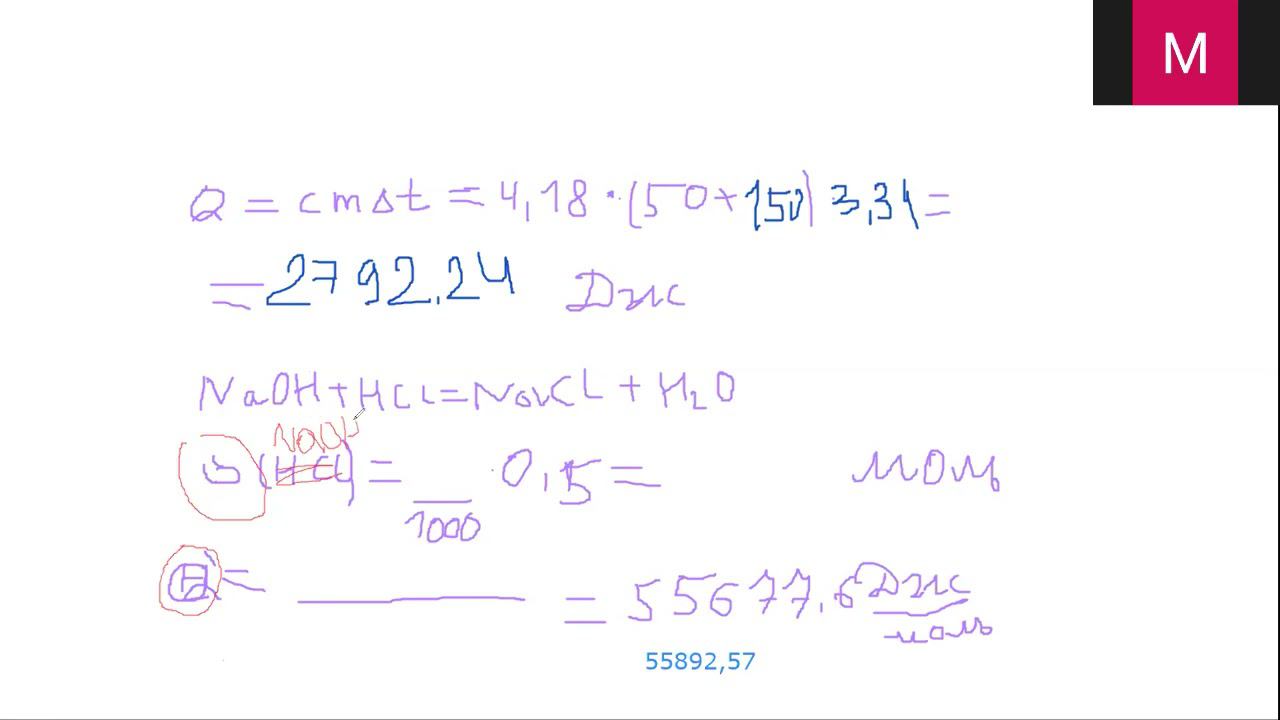 M
Q = cmΔt = 4,18 · (50 + 150) 3,34 =
= 2792,24 Дж
NaOH + HCl = NaCl + H₂O
NaOH
ν (HCl) = 0,5 = моль
1000
Q = = 55677,6 Дж
моль
55892,57